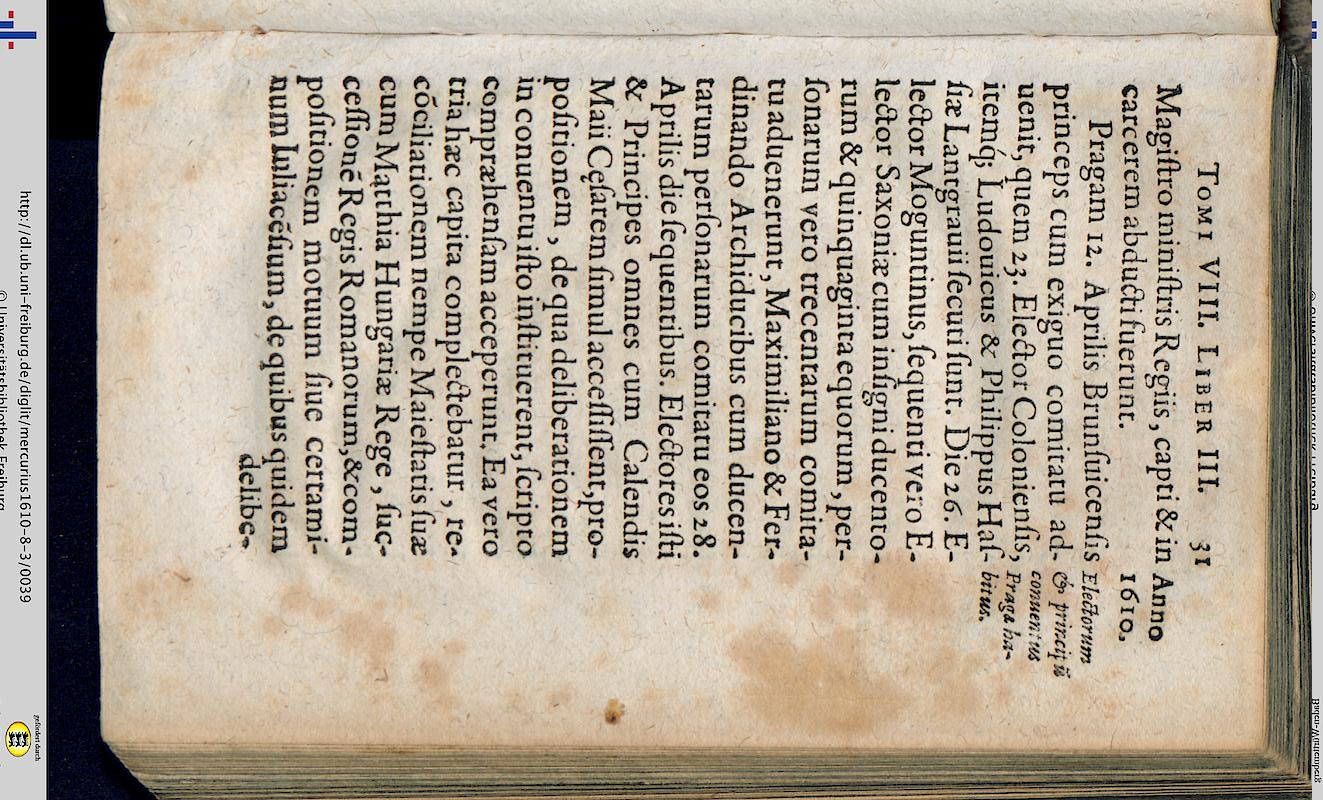 TOMI VIII. LIBER III. 31
Magiſtro miniſtris Regiis, capti & in Anno
carcerem abducti fuerunt. 1610.
Pragam 12. Aprilis Brunſuicenſis
princeps cum exiguo comitatu ad-
uenit, quem 23. Elector Colonienſis,
itemq́; Ludouicus & Philippus Haſ-
ſiæ Lantgrauii ſecuti ſunt. Die 26. E-
lector Moguntinus, ſequenti vero E-
lector Saxoniæ cum inſigni ducento-
rum & quinquaginta equorum, per-
ſonarum vero trecentarum comita-
tu aduenerunt, Maximiliano & Fer-
dinando Archiducibus cum ducen-
tarum perſonarum comitatu eos 28.
Aprilis die ſequentibus. Electores iſti
& Principes omnes cum Calendis
Maii Ceſarem ſimul acceſſiſſent, pro-
poſitionem, de qua deliberationem
in conuentu iſto inſtituerent, ſcripto
compræhenſam acceperunt. Ea vero
tria hæc capita complectebatur, re-
cōciliationem nempe Maieſtatis ſuæ
cum Matthia Hungariæ Rege, ſuc-
ceſſionē Regis Romanorum, & com-
poſitionem motuum ſiue certami-
num Iuliacēſium, de quibus quidem
delibe-
Electorum
& principū
conuentus
Praga ha-
bitus.
http://dl.ub.uni-freiburg.de/diglit/mercurius1610-8-3/0039
© Universitätsbibliothek Freiburg
gefördert durch